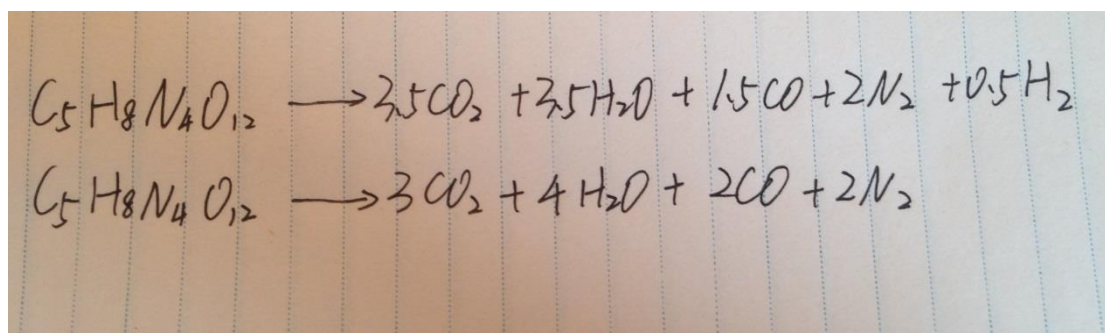 C₅H₈N₄O₁₂ ⟶ 3.5CO₂ + 3.5H₂O + 1.5CO + 2N₂ + 0.5H₂
C₅H₈N₄O₁₂ ⟶ 3CO₂ + 4H₂O + 2CO + 2N₂